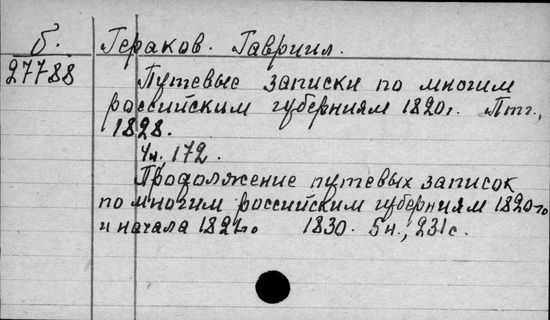 б. Гераков. Гавриил.
27788
Путевые записки по многим
российским губерниям 1820г. Птг.,
1828.
4н. 172.
Продолжение путевых записок
по многим российским губерниям 1820-го
и начала 1821го 1830. 5н., 231с.